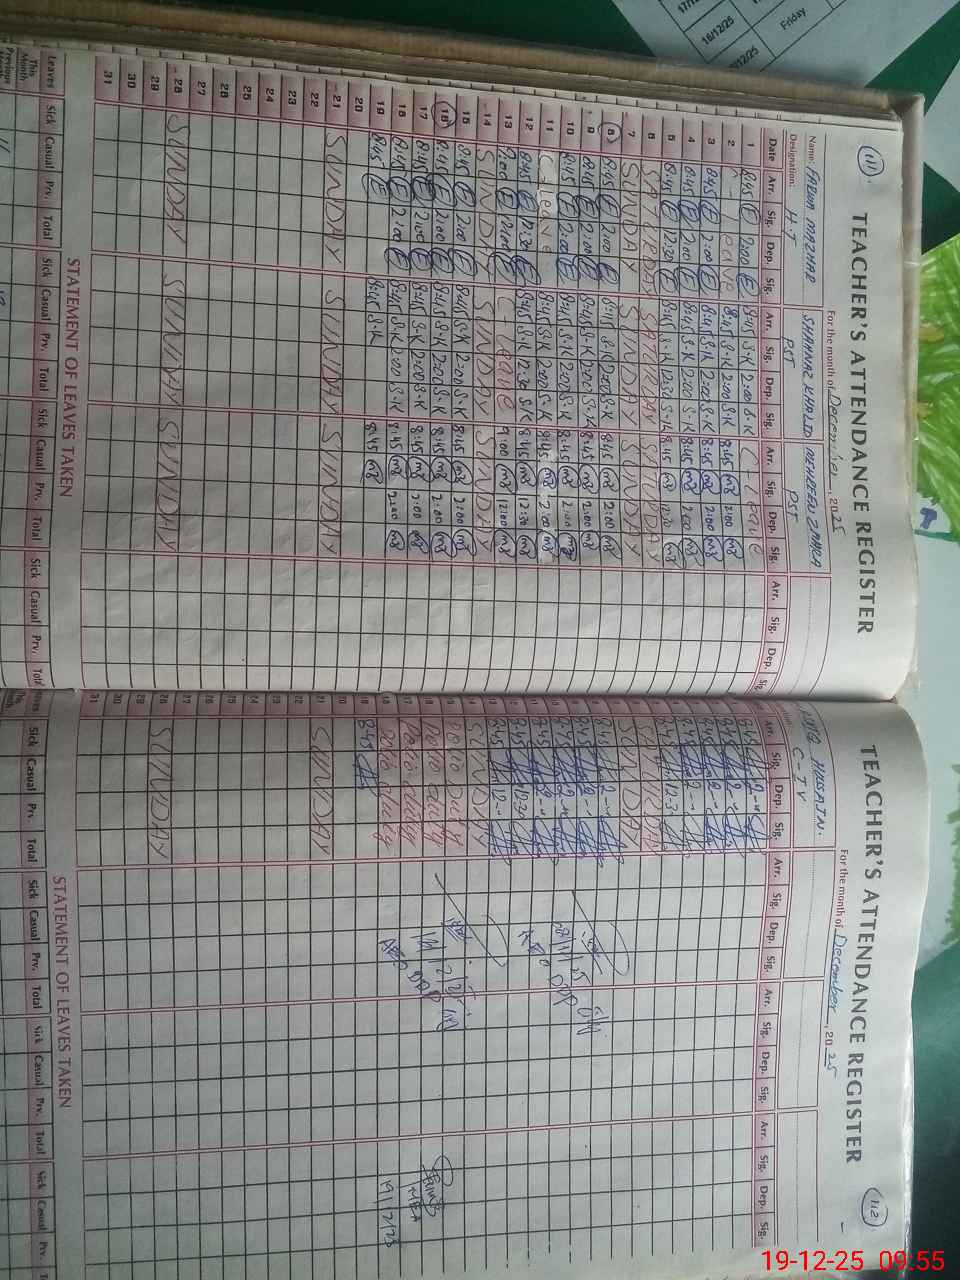 17/12
18/12/25 Friday
/12/25
111
TEACHER'S ATTENDANCE REGISTER
For the month of December, 2025
Name: MAZHAR SHAHNAZ KHALID MEHREEN ZAHRA
Designation: H.T PST PST
Date Arr. Sig. Dep. Sig. Arr. Sig. Dep. Sig. Arr. Sig. Dep. Sig. Arr. Sig. Dep. Sig.
1 8:45 E 2:00 E 8:45 S-K 2:00 S-K C-Leave
2 C-Leave 8:45 S-K 2:00 S-K 8:45 mz 2:00 mz
3 8:45 E 2:00 E 8:45 S-K 2:00 S-K 8:45 mz 2:00 mz
4 8:45 E 2:00 E 8:45 S-K 2:00 S-K 8:45 mz 2:00 mz
5 8:45 E 12:30 E 8:45 S-K 12:30 S-K 8:45 mz 12:30 mz
6 SATURDAY SATURDAY SATURDAY
7 SUNDAY SUNDAY SUNDAY
8 8:45 E 2:00 E 8:45 S-K 2:00 S-K 8:45 mz 2:00 mz
9 8:45 E 2:00 E 8:45 S-K 2:00 S-K 8:45 mz 2:00 mz
10 8:45 E 2:00 E 8:45 S-K 2:00 S-K 8:45 mz 2:00 mz
11 C-Leave 8:45 S-K 2:00 S-K 8:45 mz 2:00 mz
12 8:45 E 12:30 E 8:45 S-K 12:30 S-K 8:45 mz 12:30 mz
13 9:00 E 12:00 E C-Leave 9:00 mz 12:00 mz
14 SUNDAY SUNDAY SUNDAY
15 8:45 E 2:00 E 8:45 S-K 2:00 S-K 8:45 mz 2:00 mz
16 8:45 E 2:00 E 8:45 S-K 2:00 S-K 8:45 mz 2:00 mz
17 8:45 E 2:00 E 8:45 S-K 2:00 S-K 8:45 mz 2:00 mz
18 8:45 E 2:00 E 8:45 S-K 2:00 S-K 8:45 mz 2:00 mz
19 8:45 E 8:45 S-K 8:45 mz
20
21 SUNDAY SUNDAY SUNDAY
22
23
24
25
26
27
28 SUNDAY SUNDAY SUNDAY
29
30
31
STATEMENT OF LEAVES TAKEN
Leaves Sick Casual Prv. Total Sick Casual Prv. Total Sick Casual Prv. Total Sick Casual Prv. Total
This Month
Previous Month
112
TEACHER'S ATTENDANCE REGISTER
For the month of December, 2025
HUSSAIN.
C-IV
Arr. Sig. Dep. Sig. Arr. Sig. Dep. Sig. Arr. Sig. Dep. Sig. Arr. Sig. Dep. Sig.
SATURDAY
SUNDAY
8:45
14 SUNDAY
15 Polio Duty
16 Polio duty
17 Polio duty
18 Polio duty
19 8:45
20
21 SUNDAY
22
23
24
25
26
27
28 SUNDAY
29
30
31
AEO
MEA
19/12/25
STATEMENT OF LEAVES TAKEN
Leaves Sick Casual Prv. Total Sick Casual Prv. Total Sick Casual Prv. Total Sick Casual Prv.
19-12-25 09:55